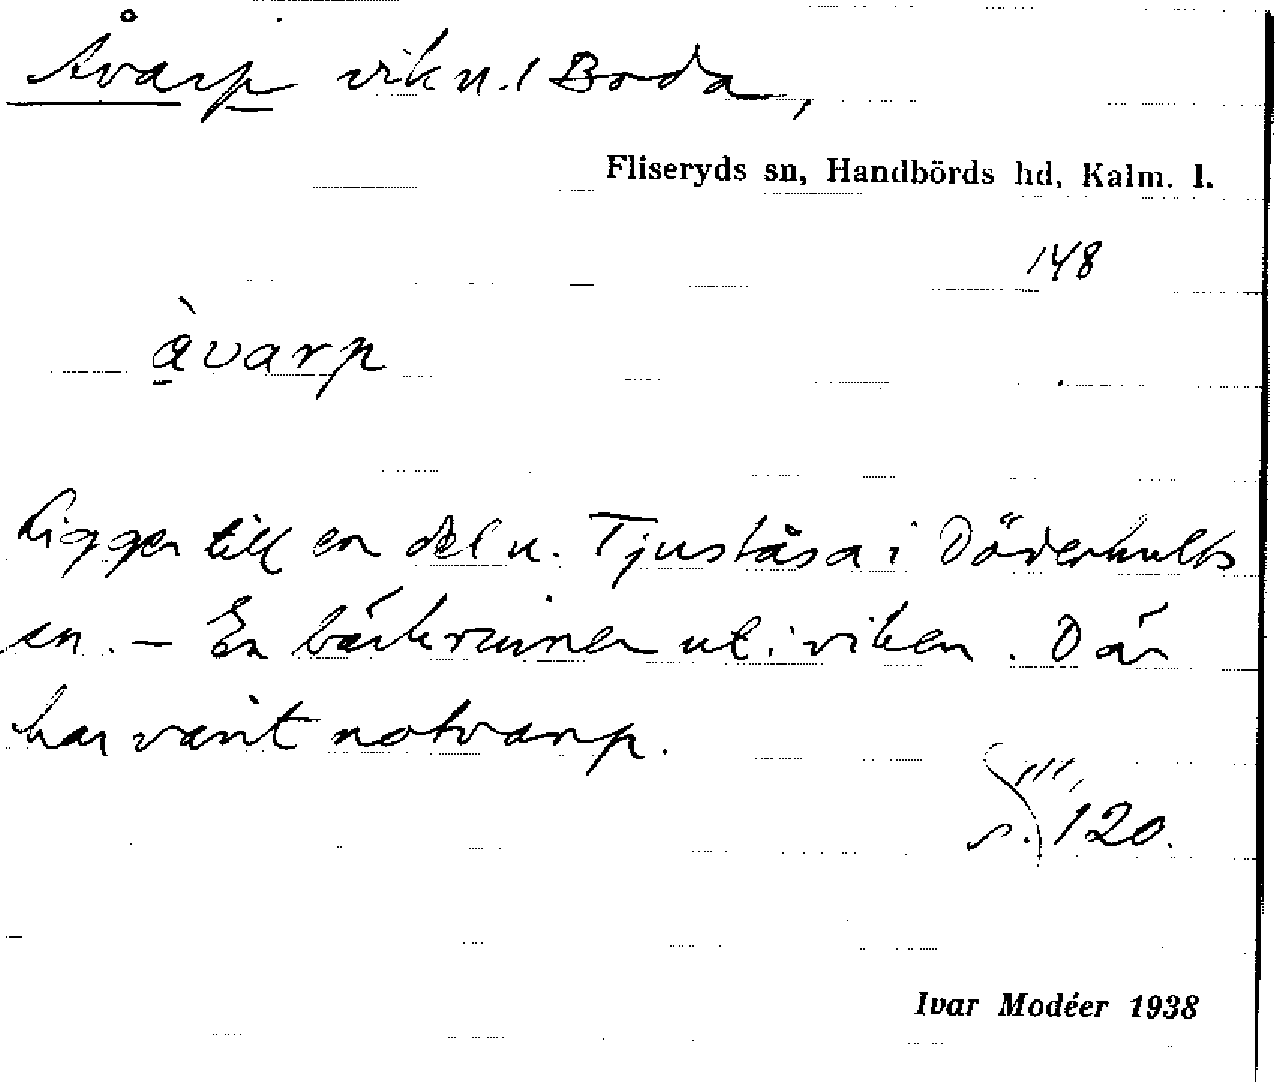 Åvarp vik u. / Boda,
Fliseryds sn, Handbörds hd, Kalm. l.
148
àvarp
Ligger till en del u. Tjuståsa i Döderhults
sn. – En bäck rinner ut i viken. Där
har varit notvarp.
III,
s. 120.
Ivar Modéer 1938